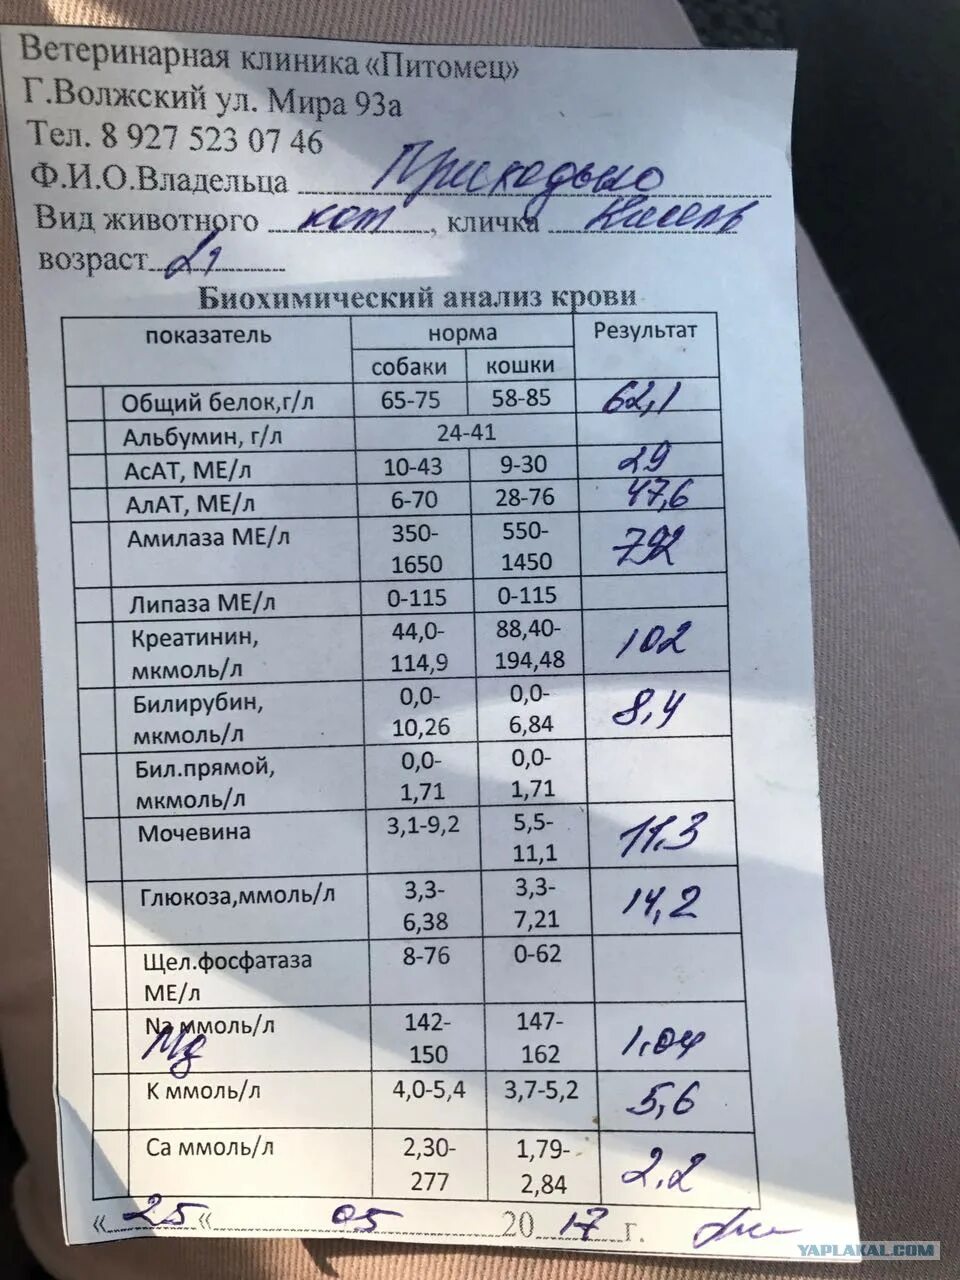 Ветеринарная клиника «Питомец»
Г.Волжский ул. Мира 93а
Тел. 8 927 523 07 46
Ф.И.О.Владельца Приходько
Вид животного кот, кличка Кисель
возраст
Биохимический анализ крови
показатель норма Результат
собаки кошки
Общий белок,г/л 65-75 58-85 62,1
Альбумин, г/л 24-41
АсАТ, МЕ/л 10-43 9-30 29
АлАТ, МЕ/л 6-70 28-76 47,6
Амилаза МЕ/л 350-1650 550-1450 792
Липаза МЕ/л 0-115 0-115
Креатинин, мкмоль/л 44,0-114,9 88,40-194,48 102
Билирубин, мкмоль/л 0,0-10,26 0,0-6,84 8,4
Бил.прямой, мкмоль/л 0,0-1,71 0,0-1,71
Мочевина 3,1-9,2 5,5-11,1 11.3
Глюкоза,ммоль/л 3,3-6,38 3,3-7,21 14,2
Щел.фосфатаза МЕ/л 8-76 0-62
Na ммоль/л Mg 142-150 147-162 1,04
К ммоль/л 4,0-5,4 3,7-5,2 5,6
Са ммоль/л 2,30-277 1,79-2,84 2.2
«25« 05 2017 г.
YAPLAKAL.COM